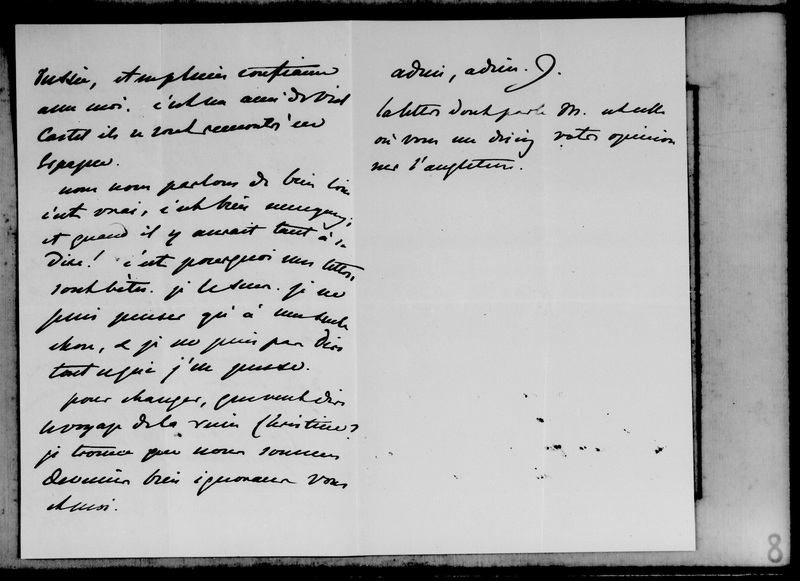 Russie, et m'plein confiance
avec moi. c'est un ami de Viel
Castel ils se sont rencontrés en
Espagne.
nous nous parlons de bien loin
c'est vrai, c'est bien ennuyeux,
et quand il y aurait tant à se
dire! c'est pourquoi mes lettres
sont bêtes. je le sens. je ne
puis penser qu'à une seule
chose, & je ne puis pas dire
tout ce que j'en pense.
pour changer, que veut dire
le voyage de la reine Christine?
je trouve que nous sommes
devenus bien ignorans vous
et moi.
adieu, adieu.
la lettre dont parle M. est celle
où vous me disiez votre opinion
sur l'angleterre.
8